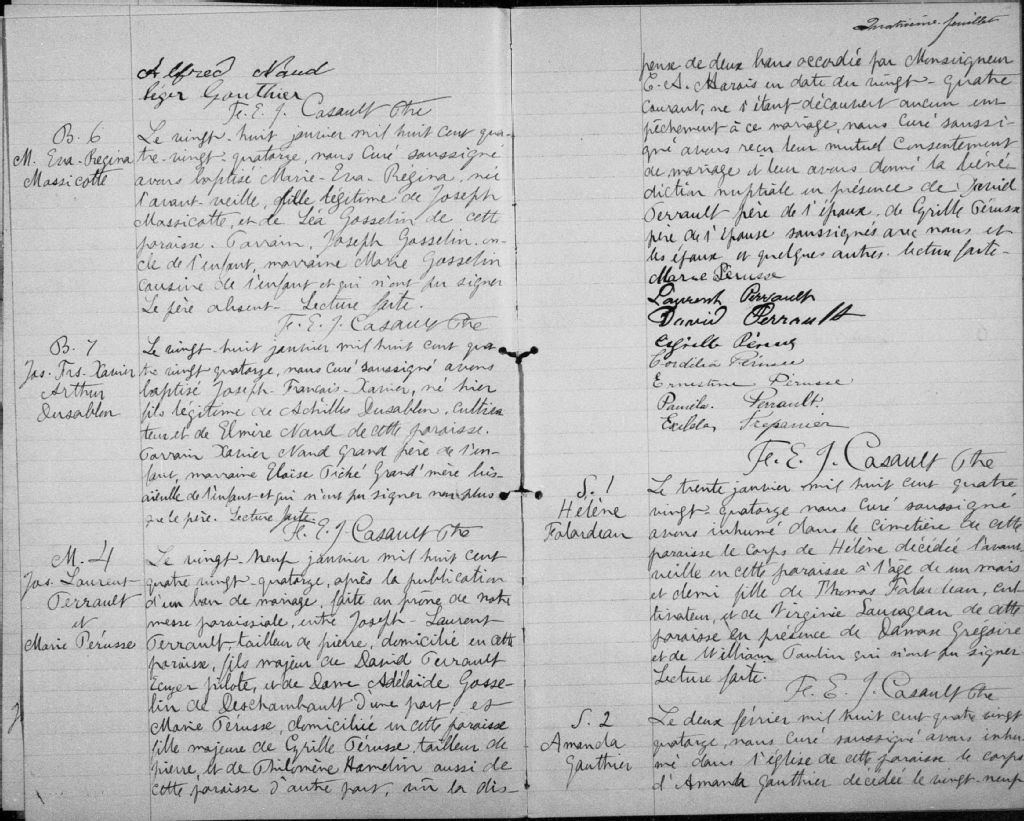 Alfred Naud
Léger Gauthier
Fr. E. J. Casault Ptre
B. 6
M. Eva-Regina
Massicotte
Le vingt-huit janvier mil huit cent qua-
tre-vingt-quatorze, nous Curé soussigné
avons baptisé Marie-Eva-Regina, née
l'avant-veille, fille légitime de Joseph
Massicotte, et de Léa Gosselin de cette
paroisse. Parrain, Joseph Gosselin on-
cle de l'enfant, marraine Marie Gosselin
cousine de l'enfant et qui n'ont pu signer
Le père absent. Lecture faite.
Fr. E. J. Casault Ptre
B. 7
Jos. Frs-Xavier
Arthur
Dusablon
Le vingt-huit janvier mil huit cent qua-
tre vingt quatorze, nous Curé soussigné avons
baptisé Joseph-Francois-Xavier, né hier
fils légitime de Achilles Dusablon, cultiva
teur et de Elmire Naud de cette paroisse.
Parrain Xavier Naud Grand père de l'en-
fant, marraine Eloïse Piché Grand'mère bis-
aïeulle de l'enfant et qui n'ont pu signer non plus
que le père. Lecture faite.
Fr. E. J. Casault Ptre
M. 4
Jos. Laurent-
Perrault
et
Marie Pérusse
Le vingt-neuf janvier mil huit cent
quatre vingt-quatorze, après la publication
d'un ban de mariage, faite au prône de notre
messe paroissiale, entre Joseph-Laurent
Perrault, tailleur de pierre, domicilié en cette
paroisse, fils majeur de David Perrault
Ecuyer pilote, et de Dame Adélaide Gosse-
lin de Deschambault d'une part, et
Marie Pérusse, domiciliée en cette paroisse
fille majeure de Cyrille Pérusse, tailleur de
pierre, et de Philomène Hamelin aussi de
cette paroisse d'autre part, vu la dis-
Quatrième feuillet
pense de deux bans accordée par Monseigneur
C. A. Marois en date du vingt-quatre
courant, ne s'étant découvert aucun em
pêchement à ce mariage, nous Curé soussi-
gné avons reçu leur mutuel Consentement
de mariage et leur avons donné la béné
diction nuptiale en présence de David
Perrault père de l'époux, de Cyrille Pérusse
père de l'épouse soussignés avec nous et
les époux et quelques autres. lecture faite-
Marie Pérusse
Laurent Perrault
David Perrault
Cyrille Pérusse
Cordélia Pérusse
Ernestine Pérusse
Paméla Perrault.
Exilda Trépanier
Fr. E. J. Casault Ptre
S. 1
Hélène
Falardeau
Le trente janvier mil huit cent quatre
vingt-quatorze nous Curé soussigné
avons inhumé dans le cimetière de cette
paroisse le corps de Hélène décédée l'avant
veille en cette paroisse à l'âge de un mois
et demi fille de Thomas Falardeau, cul
tivateur, et de Virginie Sauvageau de cette
paroisse en présence de Damase Grégoire
et de William Paulin qui n'ont pu signer
Lecture faite.
Fr. E. J. Casault Ptre
S. 2
Amanda
Gauthier
Le deux février mil huit cent quatre vingt
quatorze, nous Curé soussigné avons inhu
mé dans l'église de cette paroisse le corps
d'Amanda Gauthier décédée le vingt-neuf